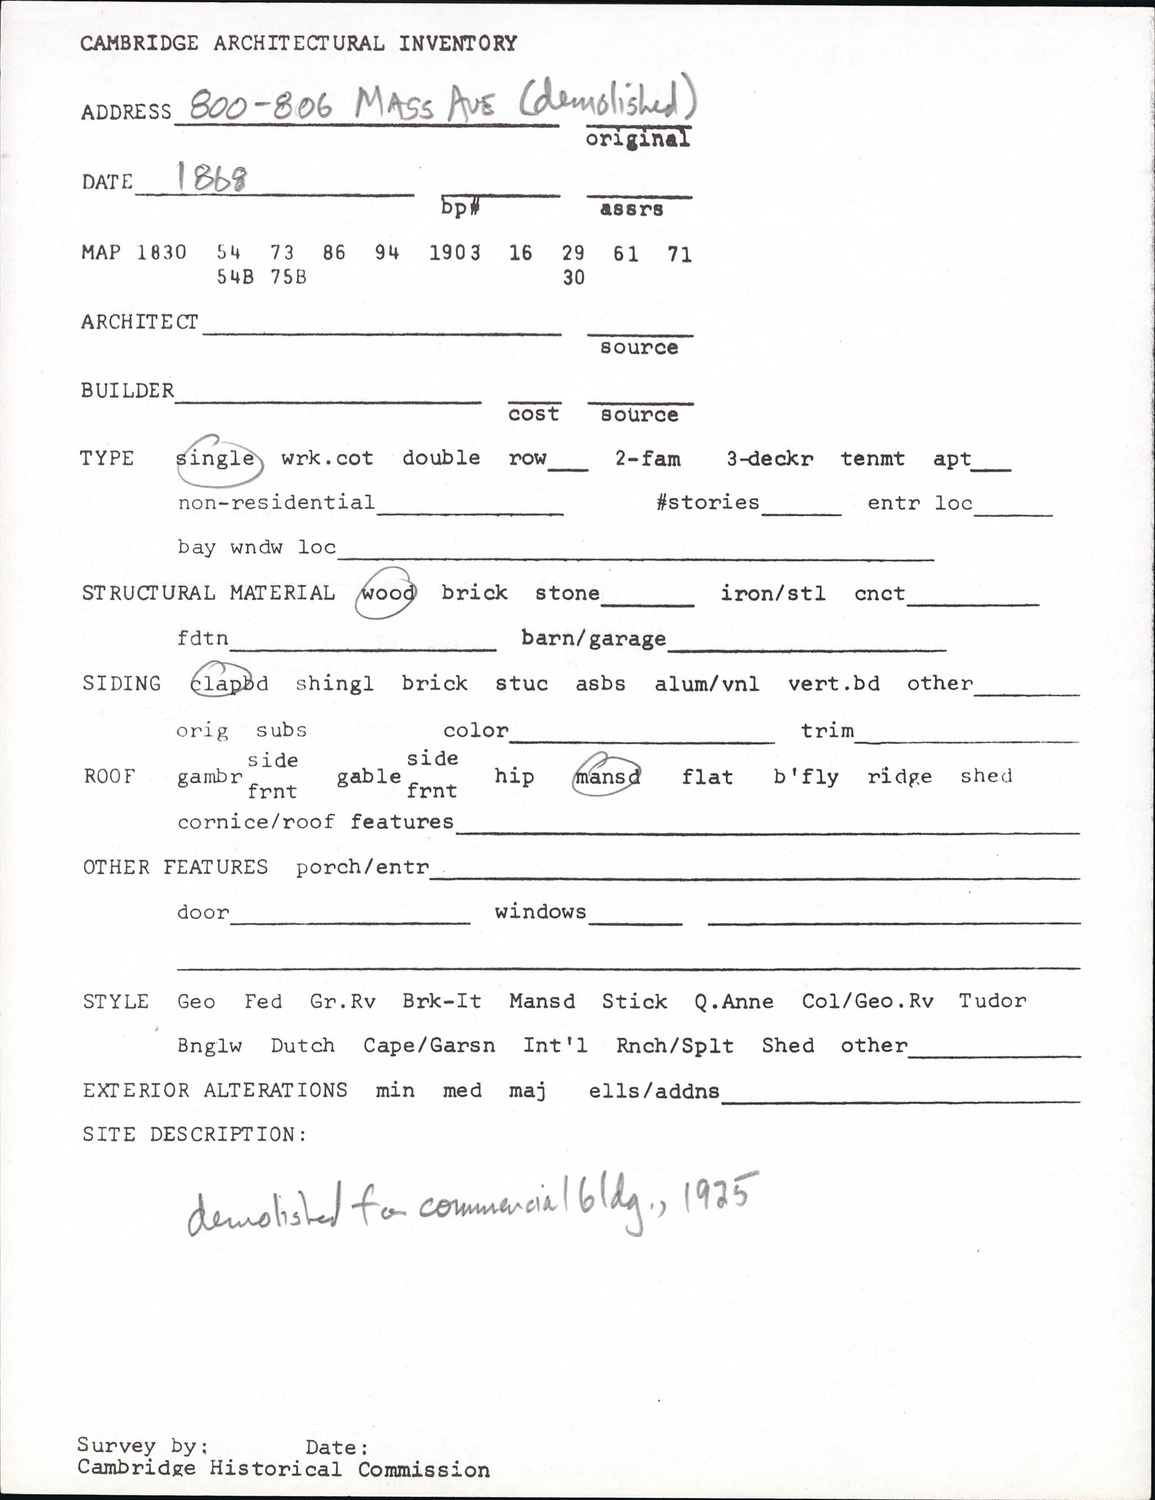 CAMBRIDGE ARCHITECTURAL INVENTORY
ADDRESS 800-806 MASS AVE (demolished)
original
DATE 1868
bp# assrs
MAP 1830 54 73 86 94 1903 16 29 61 71
54B 75B 30
ARCHITECT
source
BUILDER
cost source
TYPE single wrk.cot double row 2-fam 3-deckr tenmt apt
non-residential #stories entr loc
bay wndw loc
STRUCTURAL MATERIAL wood brick stone iron/stl cnct
fdtn barn/garage
SIDING clapbd shingl brick stuc asbs alum/vnl vert.bd other
orig subs color trim
side side
ROOF gambr gable hip mansd flat b'fly ridge shed
frnt frnt
cornice/roof features
OTHER FEATURES porch/entr
door windows
STYLE Geo Fed Gr.Rv Brk-It Mansd Stick Q.Anne Col/Geo.Rv Tudor
Bnglw Dutch Cape/Garsn Int'l Rnch/Splt Shed other
EXTERIOR ALTERATIONS min med maj ells/addns
SITE DESCRIPTION:
demolished for commercial bldg., 1925
Survey by: Date:
Cambridge Historical Commission